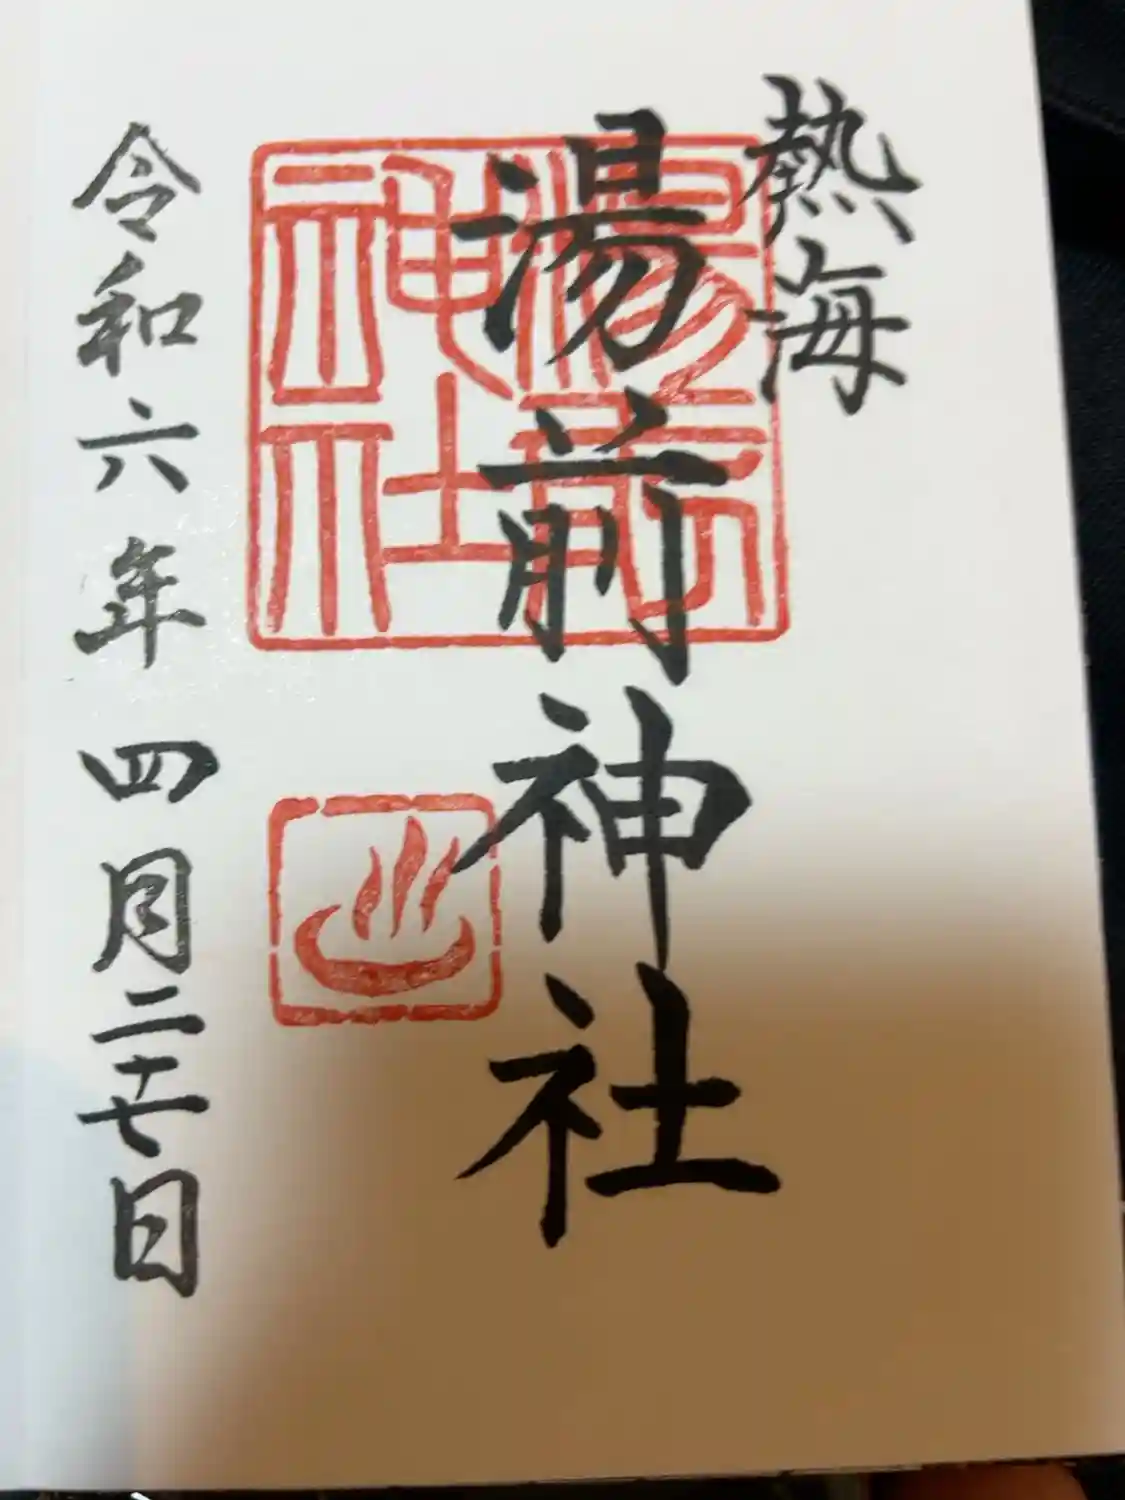 熱海
湯前神社
湯前
神社
令和六年四月二十七日